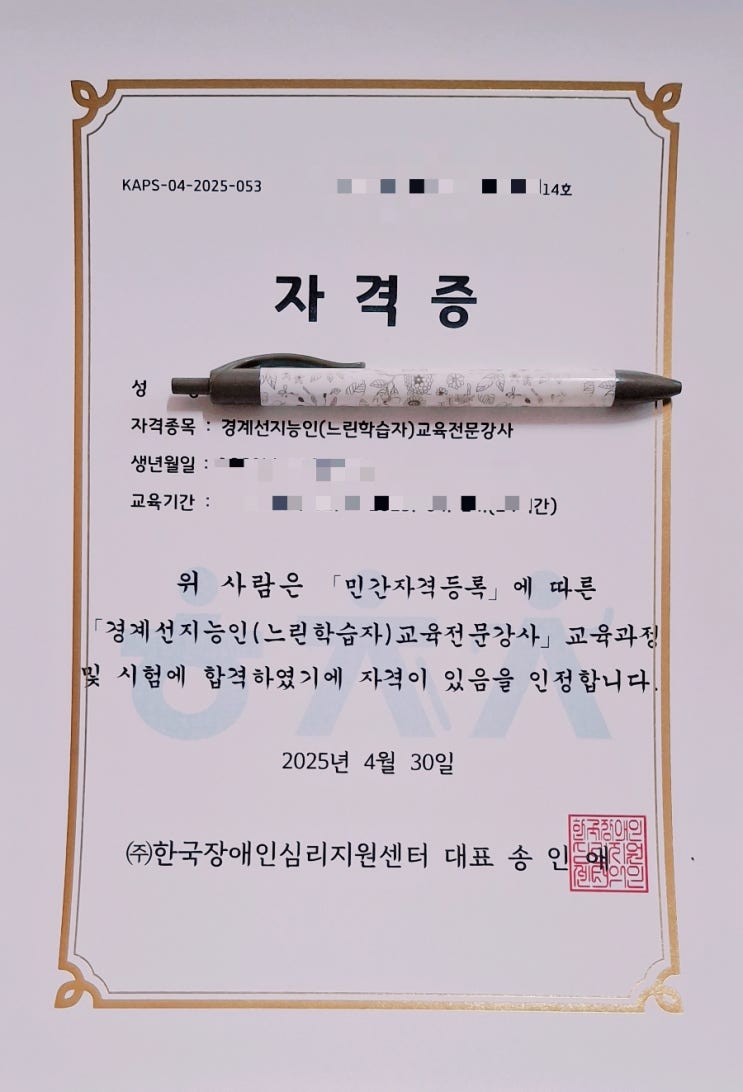 KAPS-04-2025-053 14호
자격증
성
자격종목 : 경계선지능인(느린학습자)교육전문강사
생년월일 :
교육기간 :
위 사람은 「민간자격등록」에 따른
「경계선지능인(느린학습자)교육전문강사」교육과정
및 시험에 합격하였기에 자격이 있음을 인정합니다.
2025년 4월 30일
㈜한국장애인심리지원센터 대표 송 인 애